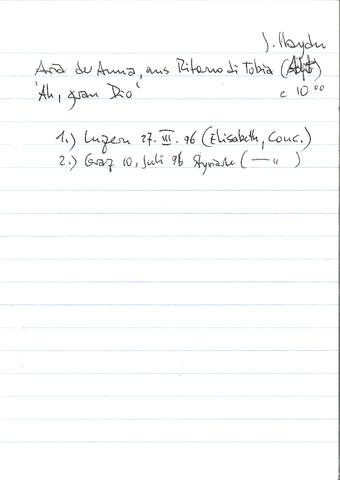 J. Haydn
Aria der Anna, aus Ritorno di Tobia (Alt)
'Ah, gran Dio' c 10⁰⁰
1.) Luzern 27. III. 96 (Elisabeth, Conc.)
2.) Graz 10. Juli 96 Styriarte (—"—)